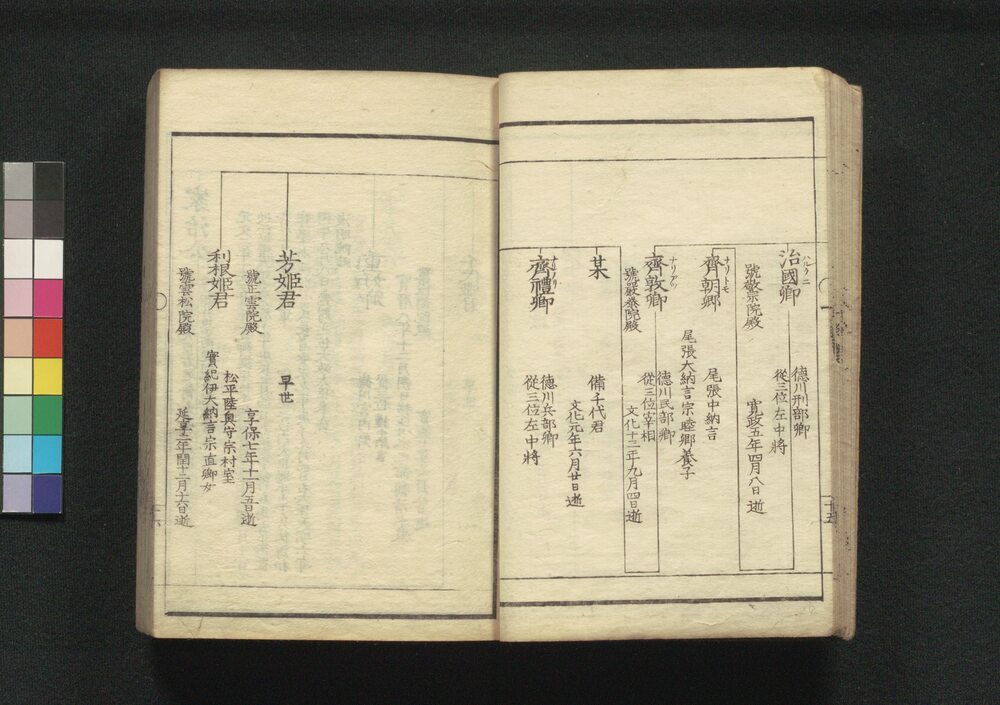 治國卿
ハルクニ
德川刑部卿
從三位左中將
寬政五年四月八日逝
號敬宗院殿
齊朝卿
ナリトモ
尾張中納言
尾張大納言宗睦卿養子
齊敦卿
ナリアツ
德川民部卿
從三位宰相
文化十三年九月四日逝
某
備千代君
文化元年六月廿日逝
齊禮卿
德川兵部卿
從三位左中將
十五
芳姬君
早世
享保七年十一月五日逝
號正雲院殿
利根姬君
松平陸奥守宗村室
實紀伊大納言宗直卿女
延享二年閏十二月十六日逝
號雲松院殿